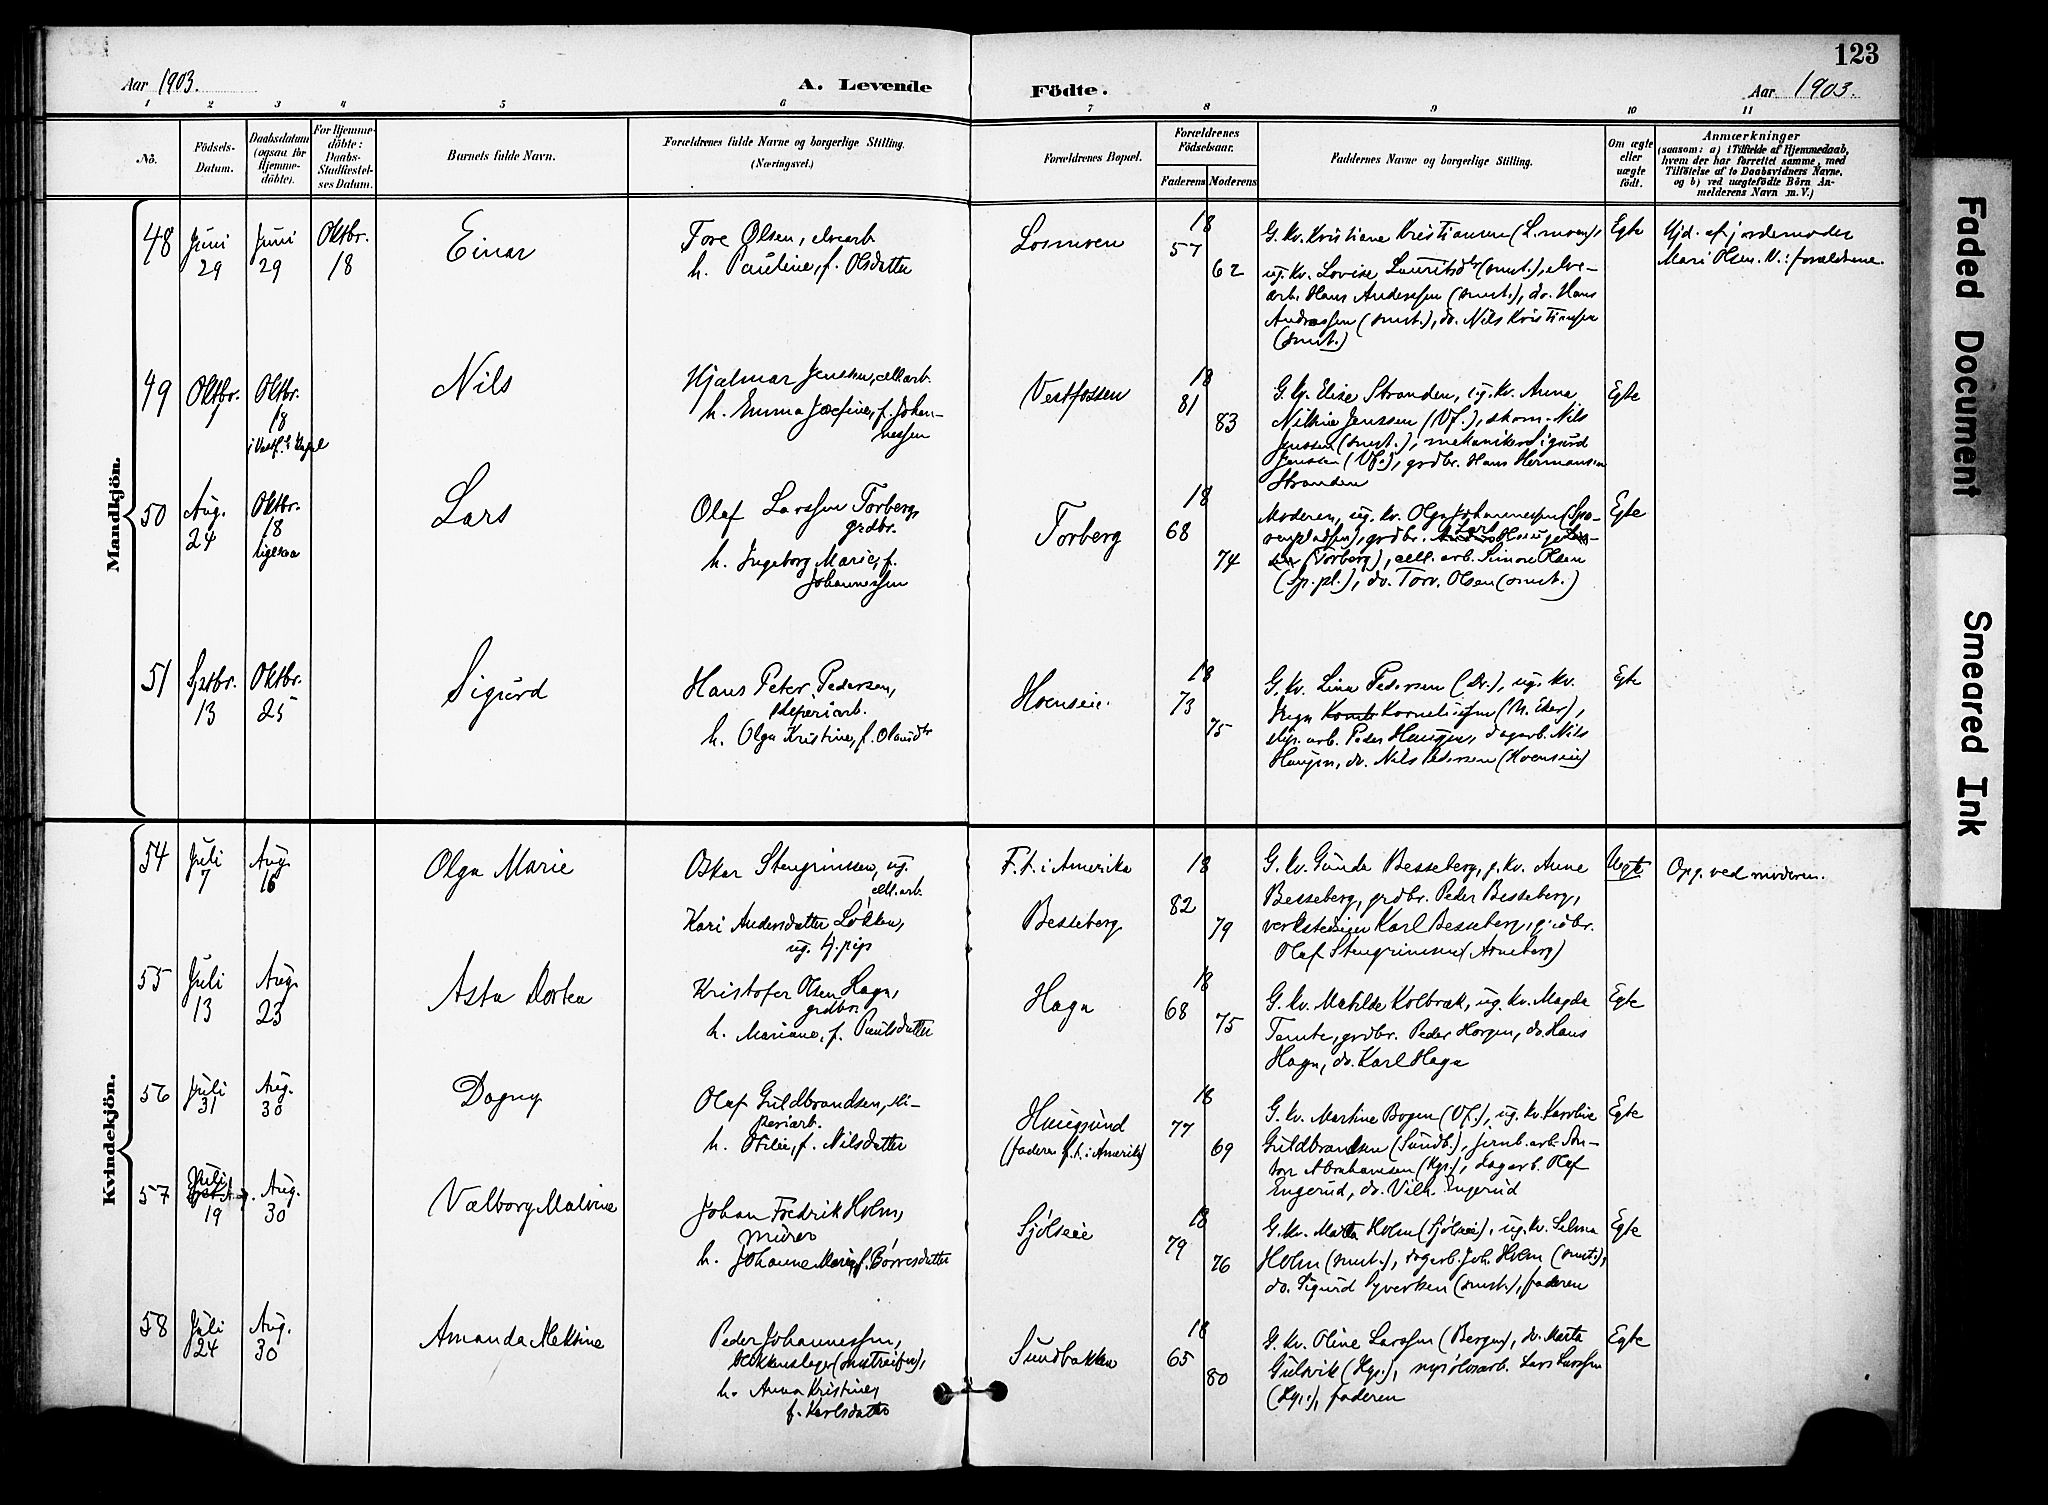 123
Aar 1903.
A. Levende Födte.
Aar 1903.
1 2 3 4 5 6 7 8 9 10 11
No.
Födsels-Datum.
Daabsdatum (ogsaa for Hjemme-döbte).
For Hjemme-döbte: Daabs-Stadfæstel-ses Datum.
Barnets fulde Navn.
Forældrenes fulde Navne og borgerlige Stilling. (Næringsvei.)
Forældrenes Bopæl.
Forældrenes Födselsaar.
Faderens Moderens
Faddernes Navne og borgerlige Stilling.
Om ægte eller uægte födt.
Anmærkninger
(saasom: a) i Tilfælde af Hjemmedaab,
hvem der har forrettet samme, med
Tilföielse af to Daabsvidners Navne,
og b) ved uægtefödte Börn An-
melderens Navn m. V.)
Mandkjön.
48
Juni 29
Juni 29
Oktbr. 18
Einar
Tore Olsen, elvearb.
h. Pauline, f. Olsdatter
Losmoen
18
57
62
G. kv. Kristiane Kristiansen (L.moen),
ug. kv. Lovise Lauritsdtr (smst.), elve-
arb. Hans Anderssen (smst.), do. Hans
Andreassen (smst.), do. Nils Kristiansen
(smst.)
Egte
Hjd. af jordemoder
Mari Olsen. V.: forældrene.
49
Oktbr. 7
Oktbr. 18
Nils
Hjalmar Jensen, cell.arb.
h. Emma Josefine, f. Johan-
nessen
Vestfossen
18
81
83
G. kv. Elise Stranden, ug. kv. Anna
Nilsine Jenssen (Vf.), skom. Nils
Jenssen (smst.), mekaniker Sigurd
Jenssen (Vf.), grdbr. Hans Hermansen
Stranden
Egte
50
Aug. 24
Oktbr. 18
ligesaa
Lars
Olaf Larssen Torberg,
grdbr.
h. Ingeborg Marie, f.
Johannessen
Torberg
18
68
74
Moderen, ug. kv. Olga Johannessen (Spo-
renpladsen), grdbr. Lars
(Torberg), cell. arb. Simon Olsen
(Sp.pl.), do. Torv. Olsen (smst.)
Egte
51
Septbr. 13
Oktbr. 25
Sigurd
Hans Peter Pedersen,
sliperiarb.
h. Olga Kristine, f. Olausdtr
Hoenseie
18
73
75
G. kv. Lina Pedersen (Dr.), ug. kv.
Inga Korneliussen (N. Eker),
slip. arb. Peder Haugen, dagarb. Nils
Haugen, do. Nils Pedersen (Hoenseie)
Egte
Kvindekjön.
54
Juli 7
Aug. 16
Olga Marie
Oskar Stengrimsen, ug.
cell.arb.
Kari Andersdatter Løkken,
ug. tj.pige
F. t. i Amerika
Besseberg
18
82
79
G. kv. Gunda Besseberg, g. kv. Anne
Besseberg, grdbr. Peder Besseberg,
verkseier Karl Besseberg, grdbr.
Olaf Stengrimsen (Arneberg)
Uegte
Opg. ved moderen.
55
Juli 13
Aug. 23
Asta Dortea
Kristofer Olsen Haga,
grdbr.
h. Mariane, f. Paulsdatter
Haga
18
68
75
G. kv. Matilde Kolbræk, ug. kv. Magda
Tomte, grdbr. Peder Horgen, do. Hans
Haga, do. Karl Haga
Egte
56
Juli 31
Aug. 30
Dagny
Olaf Guldbrandsen, sli-
periarb.
h. Otilie, f. Nilsdatter
Haugsund
(faderen f. t. i Amerika)
18
77
69
G. kv. Martine Bogen (Vf.), ug. kv. Karoline
Guldbrandsen (Sundb.), jernb. arb. An-
ton Abrahamsen (Hgs.), dagarb. Olaf
Engerud, do. Vilh. Engerud
Egte
57
Juli 19
Aug. 30
Valborg Malvine
Johan Fredrik Holm,
murer
h. Johanne Marie, f. Børresdatter
Sjølseie
18
79
76
G. kv. Marta Holm (Sjølseie), ug. kv. Selma
Holm (smst.), dagarb. Joh. Holm (smst.),
do. Sigurd Syversen (smst.), faderen
Egte
58
Juli 24
Aug. 30
Amanda Alektine
Peder Johannessen,
blikkenslager
h. Anna Kristine,
f. Karlsdatter
Sundbakken
18
65
80
G. kv. Oline Larssen (Bergen), do. Marta
Gulsvik (Hgs.), Lars Larssen
(Hgs.), faderen
Egte
Faded Document
Smeared Ink